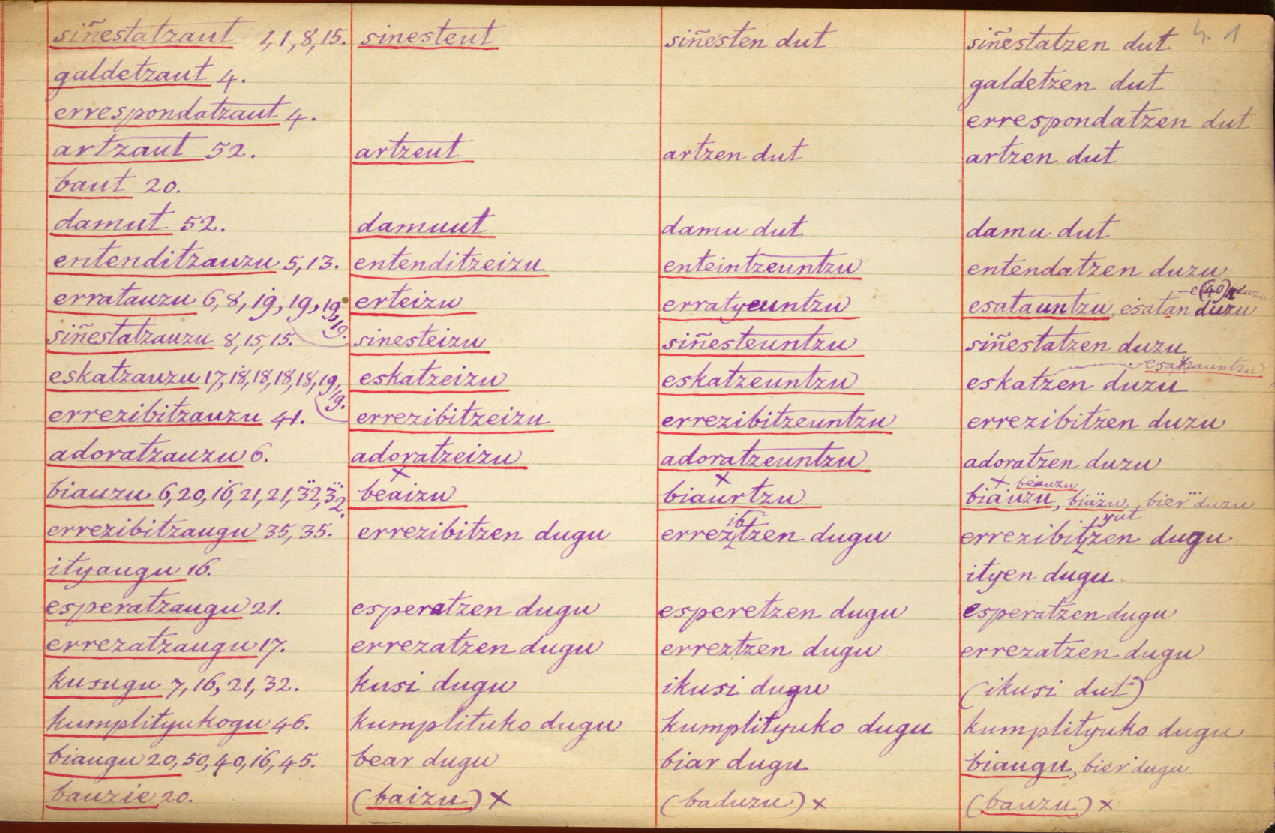 siñestatzaut 1, 1, 8, 15. sinesteut siñesten dut siñestatzen dut
galdetzaut 4. galdetzen dut
errespondatzaut 4. errespondatzen dut
artzaut 52. artzeut artzen dut artzen dut
baut 20.
damut 52. damuut damu dut damu dut
entenditzauzu 5, 13. entenditzeizu enteintzeuntzu entendatzen duzu
erratauzu 6, 8, 19, 19, 19, 19. erteizu erratyeuntzu esatauntzu, esatan duzu
siñestatzauzu 8, 15, 15. sinesteizu siñesteuntzu siñestatzen duzu
eskatzauzu 17, 18, 18, 18, 18, 19, 19. eskatzeizu eskatzeuntzu eskatzen duzu
errezibitzauzu 41. errezibitzeizu errezibitzeuntzu errezibitzen duzu
adoratzauzu 6. adoratzeizu adoratzeuntzu adoratzen duzu
biauzu 6, 20, 16, 21, 21, 32, 32. beaizu biaurtzu biauzu, biazu, bier duzu
beauzu
errezibitzaugu 35, 35. errezibitzen dugu errezitzen dugu errezibitzen dugu
ib yut
ityaugu 16. ityen dugu
esperatzaugu 21. esperatzen dugu esperetzen dugu esperatzen dugu
errezatzaugu 17. errezatzen dugu erreztzen dugu errezatzen dugu
kusugu 7, 16, 21, 32. kusi dugu ikusi dugu (ikusi dut)
kumplityukogu 46. kumplituko dugu kumplityuko dugu kumplityuko dugu
biaugu 20, 50, 40, 16, 45. bear dugu biar dugu biaugu, bier dugu
bauzie 20. (baizu) x (baduzu) x (bauzu) x